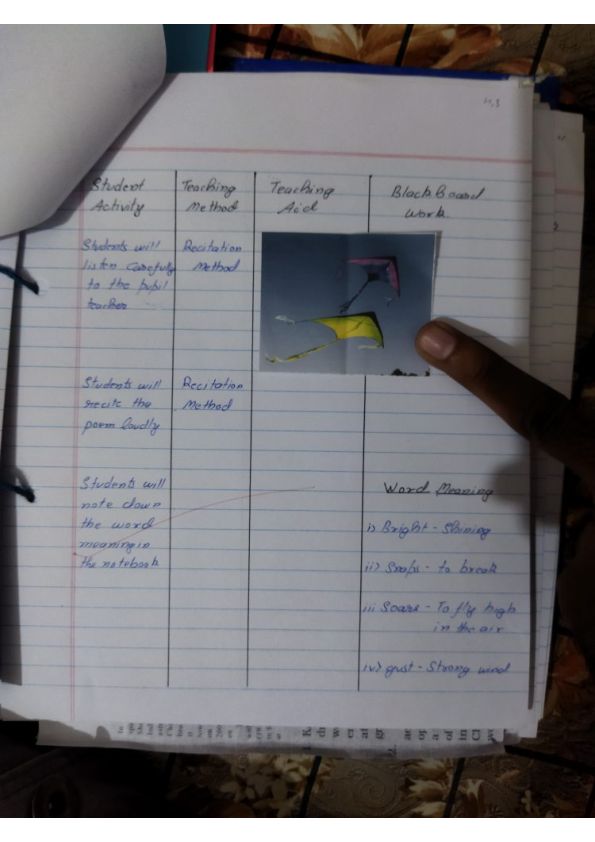 Student
Activity
Teaching
Method
Teaching
Aid
Blackboard
Work
Students will
listen carefully
to the pupil
teacher
Recitation
Method
Students will
recite the
poem loudly
Recitation
Method
Students will
note down
the word
meaning in
the notebook
Word Meaning
i) Bright - Shining
ii) Snaps - to break
iii Soars - To fly high
in the air
iv) gust - Strong wind